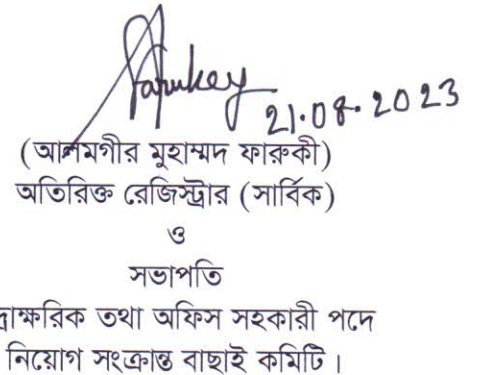 Farukey
21.08.2023
(আলমগীর মুহাম্মদ ফারুকী)
অতিরিক্ত রেজিস্ট্রার (সার্বিক)
ও
সভাপতি
তথা অফিস সহকারী পদে
নিয়োগ সংক্রান্ত বাছাই কমিটি।